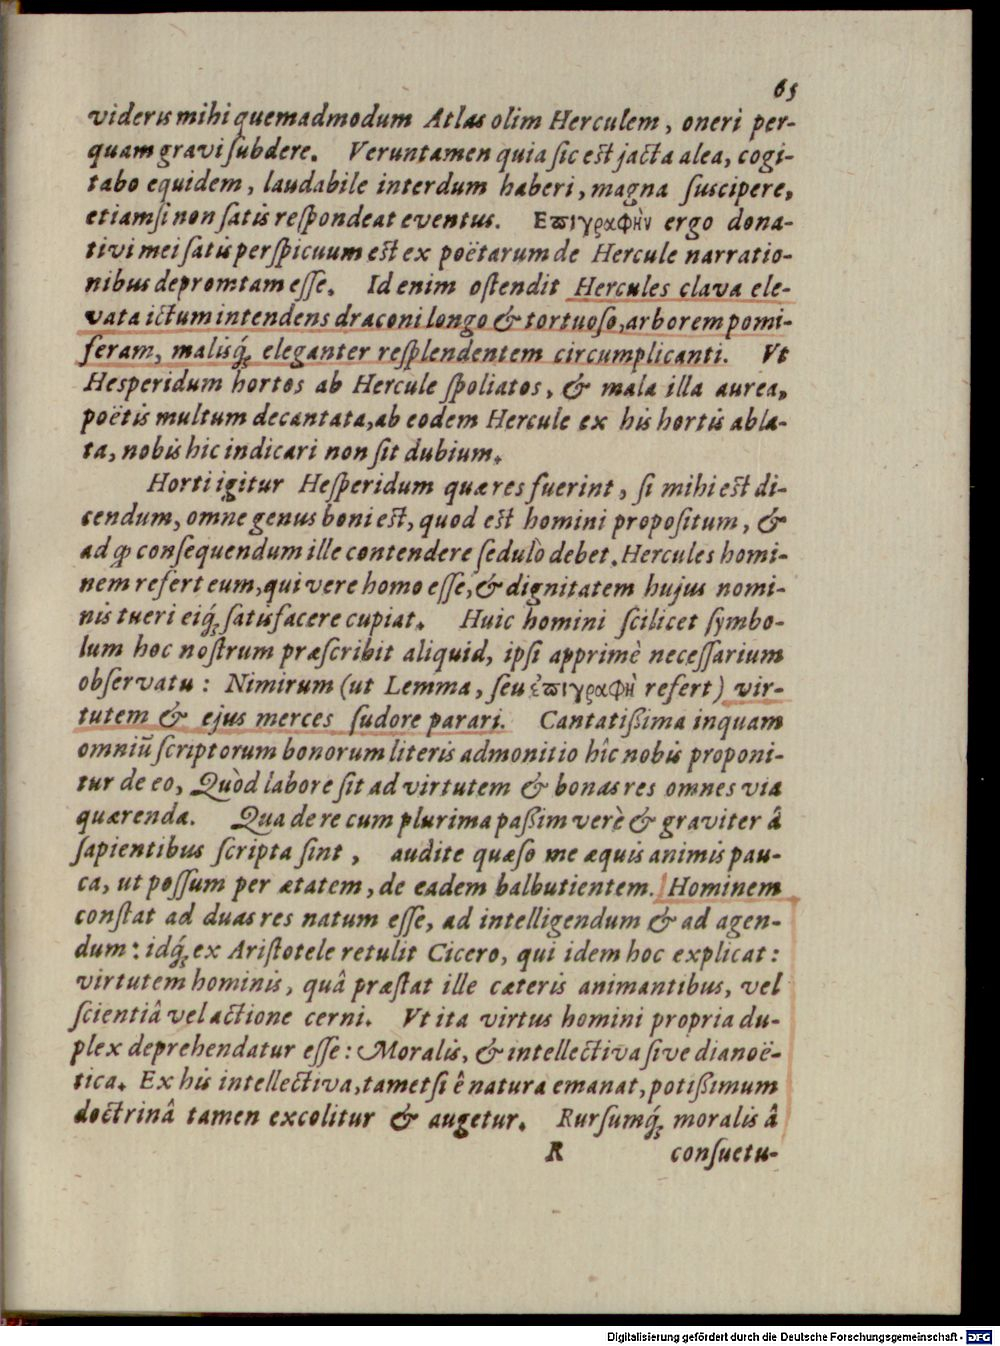 65
videris mihi quemadmodum Atlas olim Herculem, oneri per-
quam gravi ſubdere. Veruntamen quia ſic eſt jacta alea, cogi-
tabo equidem, laudabile interdum haberi, magna ſuscipere,
etiamſi non ſatis reſpondeat eventus. Επιγραφὴν ergo dona-
tivi mei ſatis perſpicuum eſt ex poëtarum de Hercule narratio-
nibus depromtam eſſe. Id enim oſtendit Hercules clava ele-
vata ictum intendens draconi longo & tortuoſo, arborem pomi-
feram, malisq́ꝫ eleganter reſplendentem circumplicanti. Vt
Hesperidum hortos ab Hercule ſpoliatos, & mala illa aurea,
poëtis multum decantata, ab eodem Hercule ex his hortis abla-
ta, nobis hic indicari non ſit dubium.
Horti igitur Heſperidum quæ res fuerint, ſi mihi eſt di-
cendum, omne genus boni eſt, quod eſt homini propoſitum, &
ad ꝙ conſequendum ille contendere ſedulò debet. Hercules homi-
nem refert eum, qui vere homo eſſe, & dignitatem hujus nomi-
nis tueri eiq́ꝫ ſatisfacere cupiat. Huic homini ſcilicet ſymbo-
lum hoc noſtrum præſcribit aliquid, ipſi apprimè neceſſarium
obſervatu: Nimirum (ut Lemma, ſeu ἐπιγραφὴ refert) vir-
tutem & ejus merces ſudore parari. Cantatißima inquam
omniũ ſcriptorum bonorum literis admonitio hîc nobis proponi-
tur de eo, Quòd labore ſit ad virtutem & bonas res omnes via
quærenda. Qua de re cum plurima paßim verè & graviter â
ſapientibus ſcripta ſint, audite quæſo me æquis animis pau-
ca, ut poſſum per ætatem, de eadem balbutientem. Hominem
conſtat ad duas res natum eſſe, ad intelligendum & ad agen-
dum: idq́ꝫ ex Ariſtotele retulit Cicero, qui idem hoc explicat:
virtutem hominis, quâ præſtat ille cæteris animantibus, vel
ſcientiâ vel actione cerni. Vt ita virtus homini propria du-
plex deprehendatur eſſe: Moralis, & intellectiva ſive dianoë-
tica. Ex his intellectiva, tametſi ê natura emanat, potißimum
doctrinâ tamen excolitur & augetur. Rurſumq́ꝫ moralis â
R conſuetu-
Digitalisierung gefördert durch die Deutsche Forschungsgemeinschaft - DFG